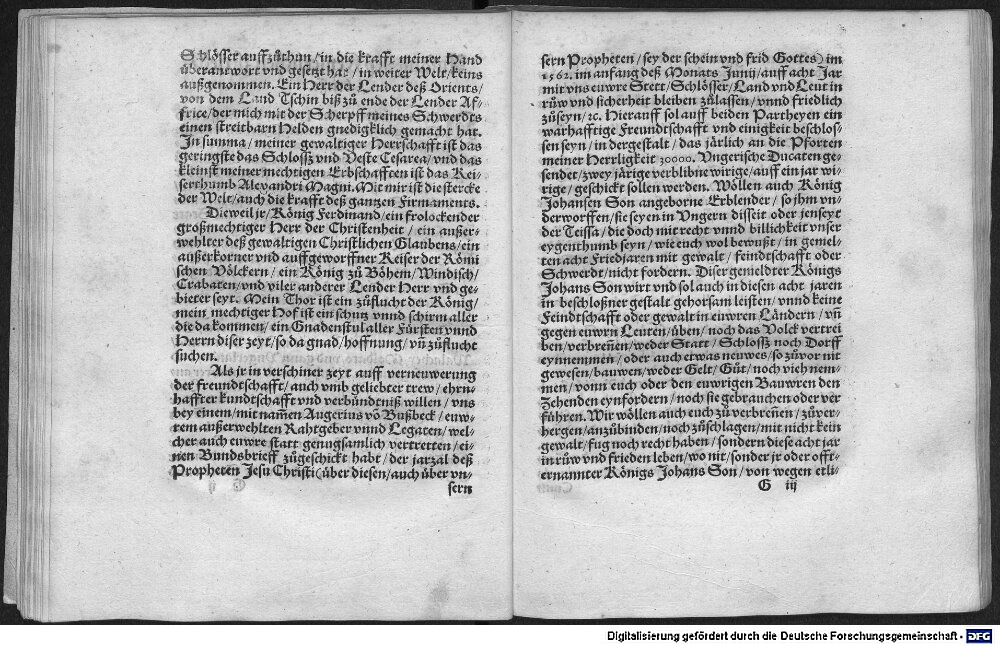 Schlösser auffzůthun / in die krafft meiner Hand
überantwort vnd gesetzt hat / in weiter Welt / keins
außgenommen. Ein Herr der Lender deß Orients /
von dem Land Tschin biß zů ende der Lender Af-
frice / der mich mit der Scherpff meines Schwerdts
einen streitbarn Helden gnedigklich gemacht hat.
In summa / meiner gewaltiger Herrschafft ist das
geringste das Schlossz vnd Veste Cesarea / vnd das
kleinst meiner mechtigen Erbschafften ist das Kei-
serthumb Alexandri Magni. Mit mir ist die stercke
der Welt / auch die krafft deß gantzen Firmaments.
Dieweil jr / König Ferdinand / ein frolockender
großmechtiger Herr der Christenheit / ein außer-
wehlter deß gewaltigen Christlichen Glaubens / ein
außerkorner vnd auffgeworffner Keiser der Römi
schen Völckern / ein König zů Böhem / Windisch /
Crabaten / vnd viler anderer Lender Herr vnd ge-
bieter seyt. Mein Thor ist ein zůflucht der König /
mein mechtiger Hof ist ein schutz vnnd schirm aller
die da kommen / ein Gnadenstul aller Fürsten vnnd
Herrn diser zeyt / so da gnad / hoffnung / vñ zůflucht
suchen.
Als jr in verschiner zeyt auff vernewerung
der freundtschafft / auch vmb geliebter trew / ehrn-
haffter kundtschafft vnd verbündtniß willen / vns
bey einem / mit namen Augerius võ Bußbeck / euw-
rem außerwehlten Rahtgeber vnnd Legaten / wel-
cher auch euwre statt genugsamlich vertretten / ei-
nen Bundsbrieff zůgeschickt habt / der jarzal deß
Propheten Jesu Christi (über diesen / auch über vn-
sern
sern Propheten / sey der schein vnd frid Gottes) im
1562. im anfang deß Monats Junij / auff acht Jar
mit vns euwre Stett / Schlösser / Land vnd Leut in
růw vnd sicherheit bleiben zůlassen / vnnd friedlich
zůseyn / ꝛc. Hierauff sol auff beiden Partheyen ein
warhafftige Freundtschafft vnd einigkeit beschlos-
sen seyn / in dergestalt / das järlich an die Pforten
meiner Herrligkeit 30000. Vngerische Ducaten ge-
sendet / zwey järige verblibne wirige / auff ein jar wi-
rige / geschickt sollen werden. Wöllen auch König
Johansen Son angeborne Erblender / so jhm vn-
derworffen / sie seyen in Vngern disseit oder jenseyt
der Teissa / die doch mit recht vnnd billichkeit vnser
eygenthumb seyn / wie euch wol bewußt / in gemel-
ten acht Friedjaren mit gewalt / feindtschafft oder
Schwerdt / nicht fordern. Diser gemeldter Königs
Johans Son wirt vnd sol auch in diesen acht jaren
in beschloßner gestalt gehorsam leisten / vnnd keine
Feindtschafft oder gewalt in euwren Ländern / vñ
gegen euwrn Leuten / üben / noch das Volck vertrei
ben / verbreñen / weder Statt / Schlossz noch Dorff
eynnemmen / oder auch etwas neuwes / so zůvor nit
gewesen / bauwen / weder Gelt / Gůt / noch vieh nem-
men / vonn euch oder den euwrigen Bauwren den
Zehenden eynfordern / noch sie gebrauchen oder ver
führen. Wir wöllen auch euch zů verbreñen / zůver-
hergen / anzůbinden / noch zůschlagen / mit nicht kein
gewalt / fug noch recht haben / sondern diese acht jar
in růw vnd frieden leben / wo nit / sonder jr oder offt-
ernannter Königs Johans Son / von wegen etli-
G iij
Digitalisierung gefördert durch die Deutsche Forschungsgemeinschaft - DFG